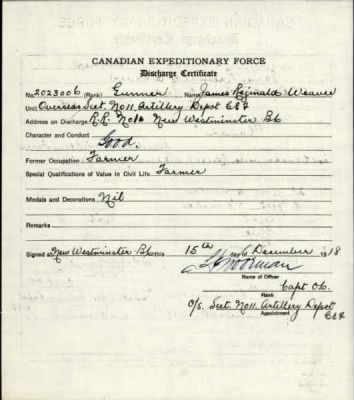 CANADIAN EXPEDITIONARY FORCE
Discharge Certificate
No. 2023006 (Rank) Gunner Name James Reginald Weaver
Unit Overseas Sect. No 11. Artillery Depot CEF
Address on Discharge R.R. No 1. New Westminster Bc
Character and Conduct
Good.
Former Occupation Farmer
Special Qualifications of Value in Civil Life Farmer
Medals and Decorations Nil
Remarks
Signed at New Westminster Bc this 15th day of December 1918
Name of Officer
Capt OC.
Rank
O/c. Sect. No 11. Artillery Depot
Appointment CEF